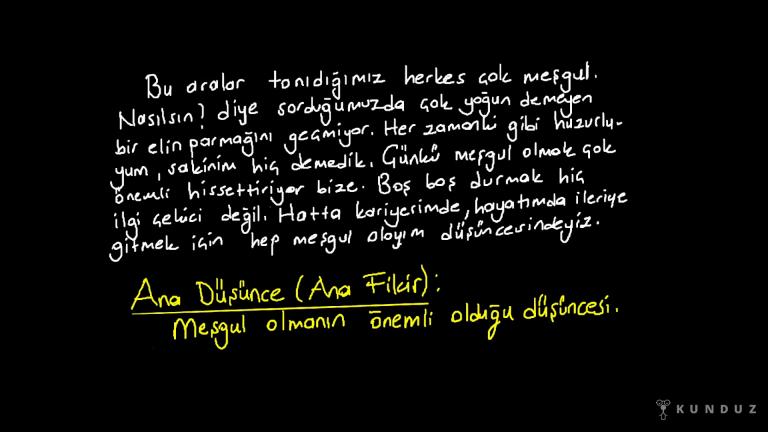 Bu aralar tanıdığımız herkes çok meşgul.
Nasılsın? diye sorduğumuzda çok yoğun demeyen
bir elin parmağını geçmiyor. Her zamanki gibi huzurlu-
yum, sakinim hiç demedik. Çünkü meşgul olmak çok
önemli hissettiriyor bize. Boş boş durmak hiç
ilgi çekici değil. Hatta kariyerimde, hayatımda ileriye
gitmek için hep meşgul olayım düşüncesindeyiz.
Ana Düşünce (Ana Fikir):
Meşgul olmanın önemli olduğu düşüncesi.
KUNDUZ